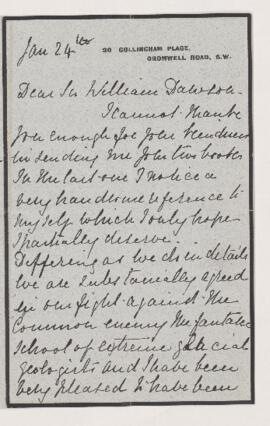 Jan 24th
30 COLLINGHAM PLACE,
CROMWELL ROAD, S.W.
Dear Sir William Dawson
I cannot thank
you enough for your kindness
in sending me your two books
In the last one I notice a
very handsome reference to
myself which I only hope
I partially deserve.
Differing as we do in details
we are substantially agreed
in our fight against the
common enemy the fantastic
school of extreme glacial
geologists and I have been
very pleased to have been